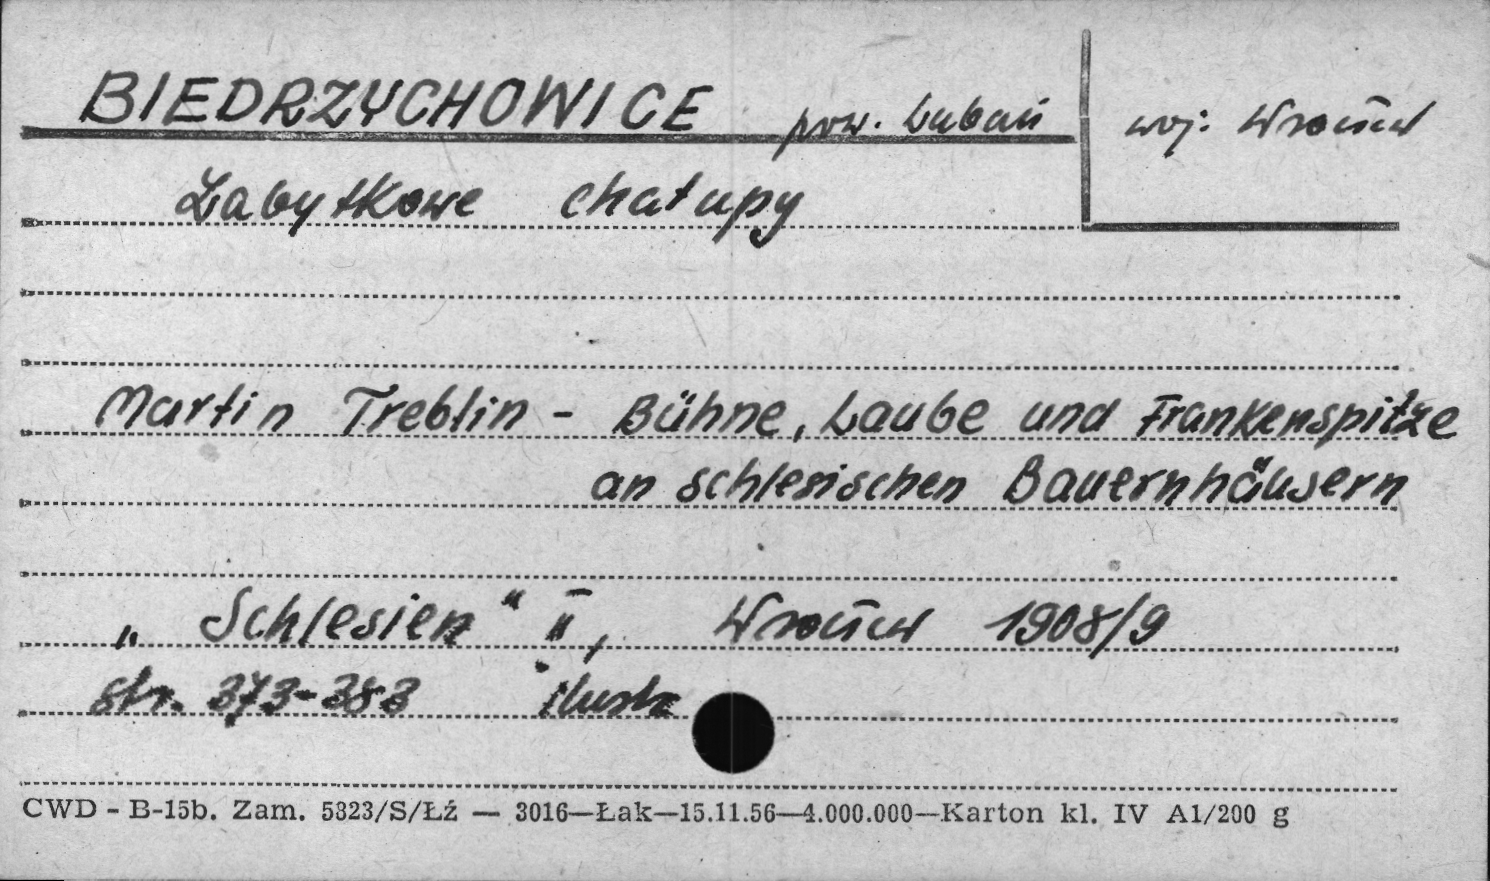 BIEDRZYCHOWICE pow. Lubań woj: Wrocław
Zabytkowe chałupy
Martin Treblin - Bühne, Laube und Frankenspitze
an schlesischen Bauernhäusern
„ Schlesien " II, Wrocław 1908/9
str. 373-383 ilustr.
CWD - B-15b. Zam. 5323/S/Łź — 3016—Łak—15.11.56—4.000.000—Karton kl. IV A1/200 g